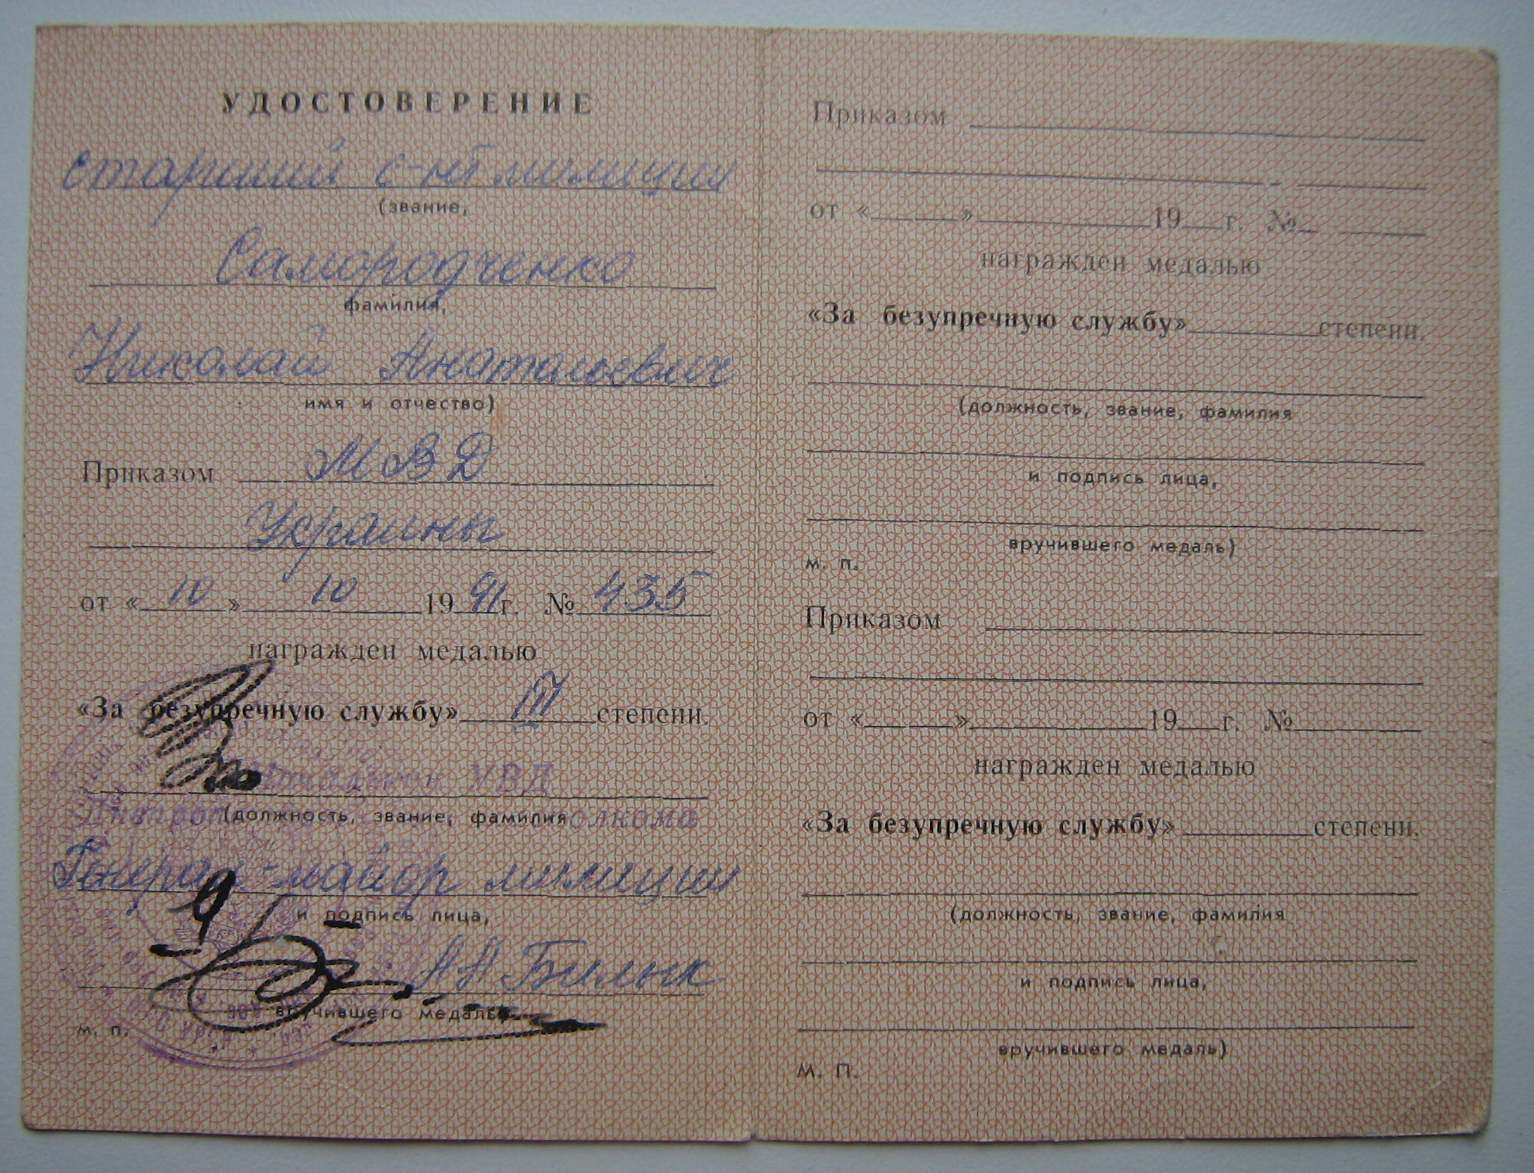 УДОСТОВЕРЕНИЕ
старший с-нт милиции
(звание,
Самородченко
фамилия,
Николай Анатольевич
имя и отчество)
Приказом МВД
Украины
от «10» 10 1991г. № 435
награжден медалью
«За безупречную службу» III степени.
Начальник УВД
(должность, звание, фамилия
Генерал-майор милиции
и подпись лица,
А А Билык
вручившего медаль)
м. п.
Приказом
от « » 19 г. №
награжден медалью
«За безупречную службу» степени.
(должность, звание, фамилия
и подпись лица,
вручившего медаль)
м. п.
Приказом
от « » 19 г. №
награжден медалью
«За безупречную службу» степени.
(должность, звание, фамилия
и подпись лица,
вручившего медаль)
М. П.